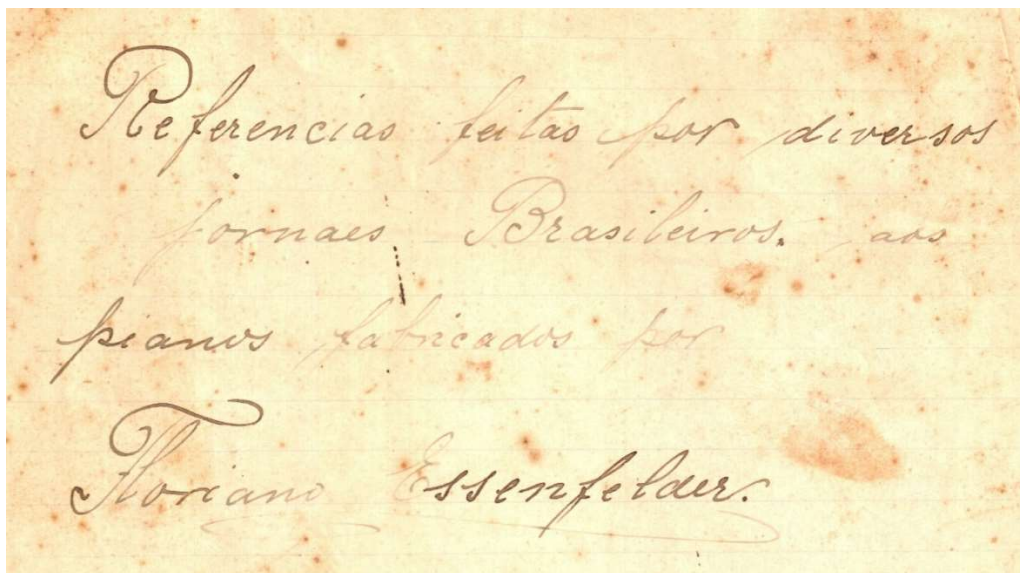 Referencias feitas por diversos
jornaes Brasileiros. aos
pianos fabricados por
Floriano Essenfelder.